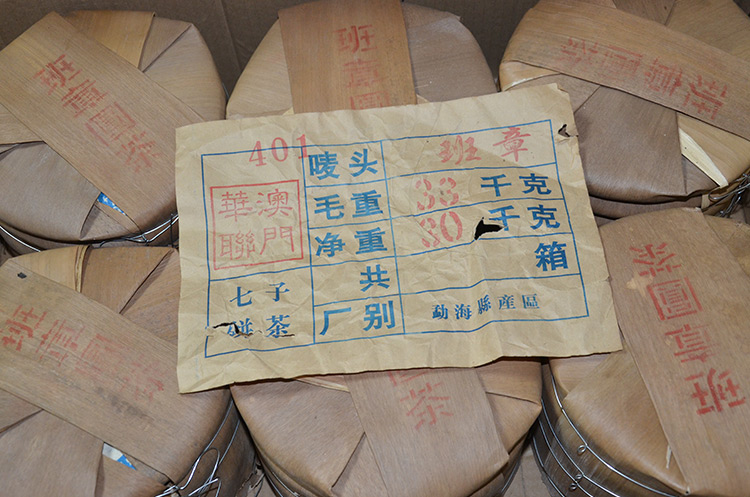 班章圓茶
班章圓
班章圓茶
401
唛头 班章
華澳
聯門
毛重 33 千克
净重 30 千克
共 箱
七子
餅茶
厂别 勐海縣産區
班章圓茶
茶
班章圓茶